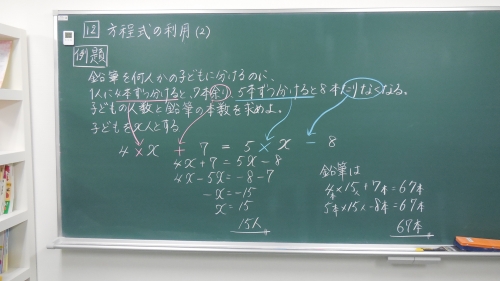 12 方程式の利用(2)
例題
鉛筆を何人かの子どもに分けるのに、
1人に4本ずつ分けると、7本余り、5本ずつ分けると8本たりなくなる。
子どもの人数と鉛筆の本数を求めよ。
子どもをx人とする
4 × x + 7 = 5 × x - 8
4x + 7 = 5x - 8
4x - 5x = -8 - 7
-x = -15
x = 15
15人
鉛筆は
4本×15人+7本=67本
5本×15人-8本=67本
67本